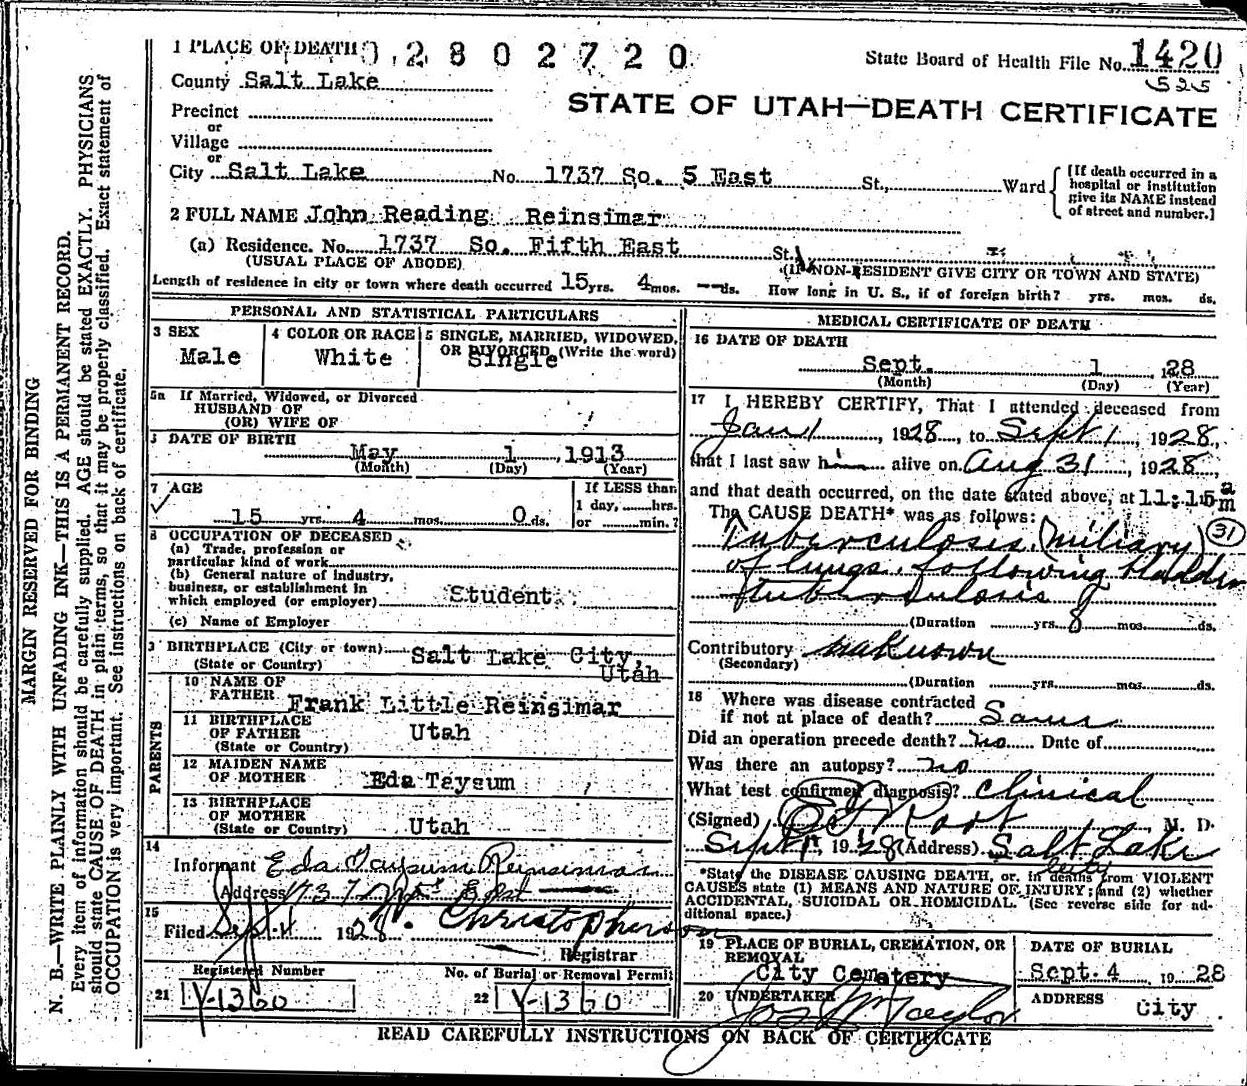 1 PLACE OF DEATH 0 2 8 0 2 7 2 0
State Board of Health File No. 1420
525
County Salt Lake
STATE OF UTAH—DEATH CERTIFICATE
Precinct
or
Village
or
City Salt Lake No. 1737 So. 5 East St., Ward
[If death occurred in a hospital or institution give its NAME instead of street and number.]
2 FULL NAME John Reading Reinsimar
(a) Residence. No. 1737 So. Fifth East St.
(USUAL PLACE OF ABODE) (IF NON-RESIDENT GIVE CITY OR TOWN AND STATE)
Length of residence in city or town where death occurred 15 yrs. 4 mos. -- ds. How long in U. S., if of foreign birth? yrs. mos. ds.
PERSONAL AND STATISTICAL PARTICULARS
3 SEX
Male
4 COLOR OR RACE
White
5 SINGLE, MARRIED, WIDOWED,
OR DIVORCED (Write the word)
Single
5a If Married, Widowed, or Divorced
HUSBAND OF
(OR) WIFE OF
DATE OF BIRTH
May 1, 1913
(Month) (Day) (Year)
7 AGE
15 yrs. 4 mos. 0 ds.
If LESS than
1 day, hrs.
or min.?
8 OCCUPATION OF DECEASED
(a) Trade, profession or
particular kind of work
(b) General nature of industry,
business, or establishment in
which employed (or employer) Student
(c) Name of Employer
BIRTHPLACE (City or town) Salt Lake City,
(State or Country) Utah
PARENTS
10 NAME OF
FATHER Frank Little Reinsimar
11 BIRTHPLACE
OF FATHER Utah
(State or Country)
12 MAIDEN NAME
OF MOTHER Eda Taysum
13 BIRTHPLACE
OF MOTHER
(State or Country) Utah
14
Informant Eda Taysum Reinsimar
Address 1737 East
15
Filed Sept. 4 1928. Christopherson
Registrar
Registered Number
21 Y-1360
No. of Burial or Removal Permit
22 Y-1360
MEDICAL CERTIFICATE OF DEATH
16 DATE OF DEATH
Sept. 1 1928
(Month) (Day) (Year)
17 I HEREBY CERTIFY, That I attended deceased from
Jan 1, 1928, to Sept 1, 1928,
that I last saw him alive on Aug 31, 1928,
and that death occurred, on the date stated above, at 11:15 a m
The CAUSE DEATH* was as follows: 31
Tuberculosis, (miliary)
of lungs, following bladder
tuberculosis
(Duration yrs. 8 mos. ds.
Contributory unknown
(Secondary)
(Duration yrs. mos. ds.
18 Where was disease contracted
if not at place of death? Same
Did an operation precede death? No Date of
Was there an autopsy? no
What test confirmed diagnosis? Clinical
(Signed) Root M. D.
Sept 1, 1928 (Address) Salt Lake
City
*State the DISEASE CAUSING DEATH, or, in deaths from VIOLENT
CAUSES state (1) MEANS AND NATURE OF INJURY; and (2) whether
ACCIDENTAL, SUICIDAL OR HOMICIDAL. (See reverse side for ad-
ditional space.)
19 PLACE OF BURIAL, CREMATION, OR
REMOVAL
City Cemetery
DATE OF BURIAL
Sept. 4 1928
20 UNDERTAKER
Jos Wm Taylor
ADDRESS
City
READ CAREFULLY INSTRUCTIONS ON BACK OF CERTIFICATE
MARGIN RESERVED FOR BINDING
N. B.—WRITE PLAINLY WITH UNFADING INK—THIS IS A PERMANENT RECORD.
Every item of information should be carefully supplied. AGE should be stated EXACTLY. PHYSICIANS
should state CAUSE OF DEATH in plain terms, so that it may be properly classified. Exact statement of
OCCUPATION is very important. See instructions on back of certificate.